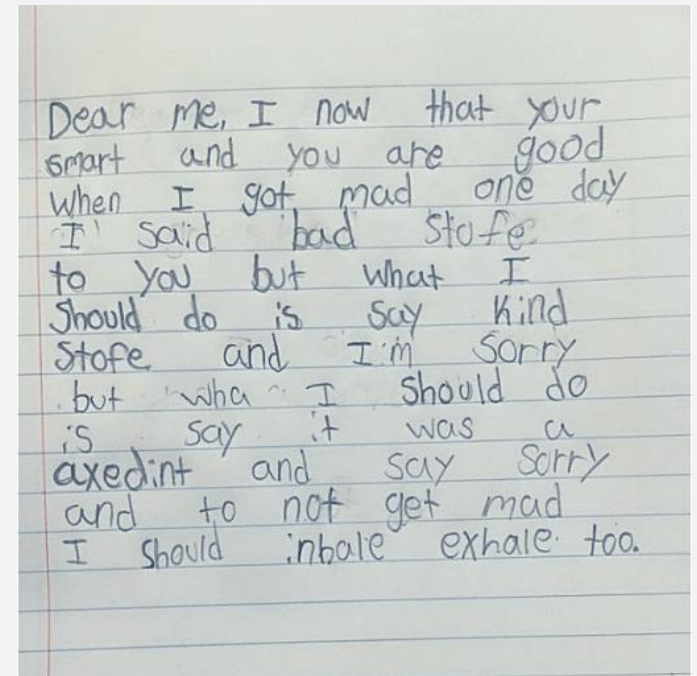 Dear me, I now that your
smart and you are good
when I got mad one day
I said bad stofe
to you but what I
should do is say kind
stofe and I'm sorry
but wha I should do
is say it was a
axedint and say sorry
and to not get mad
I should inhale exhale too.